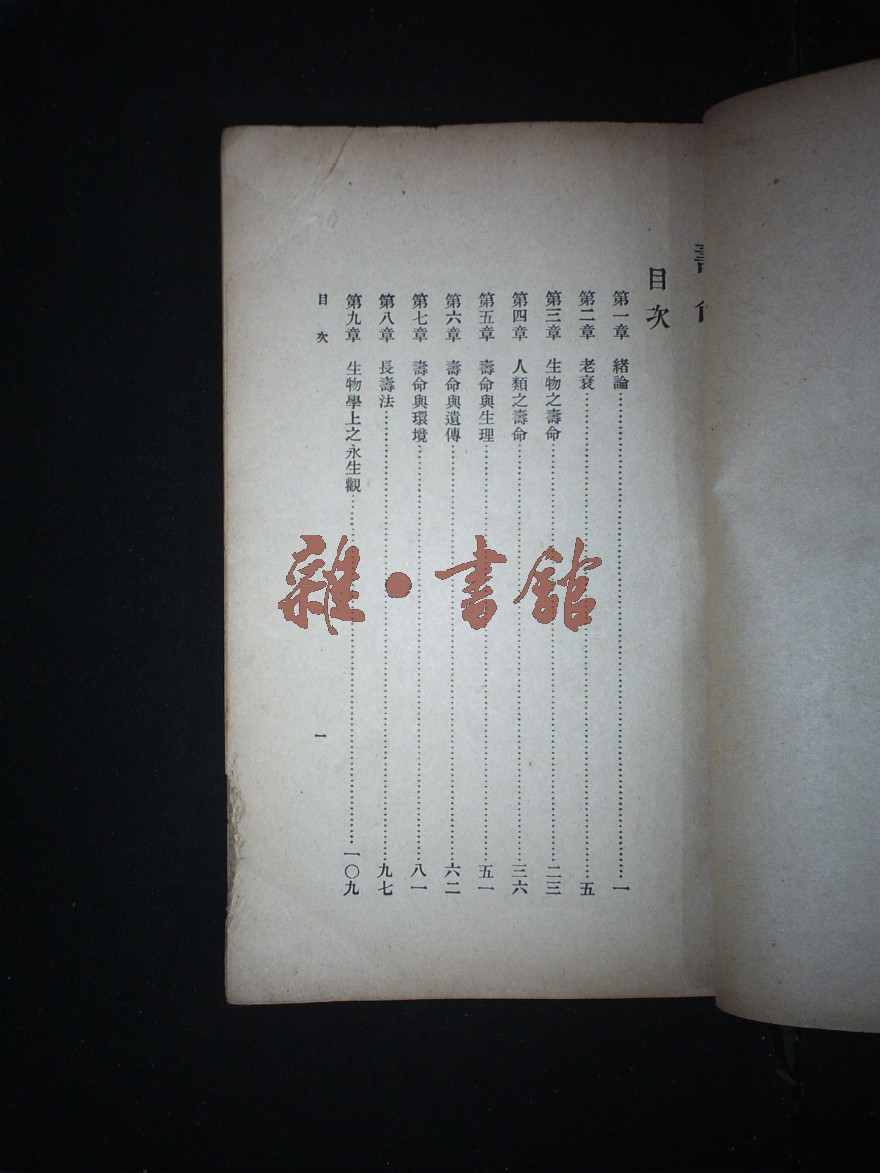 壽命
目次
第一章 緒論……一
第二章 老衰……五
第三章 生物之壽命……二三
第四章 人類之壽命……三六
第五章 壽命與生理……五一
第六章 壽命與遺傳……六二
第七章 壽命與環境……八一
第八章 長壽法……九七
第九章 生物學上之永生觀……一〇九
目次
一
雜·書館